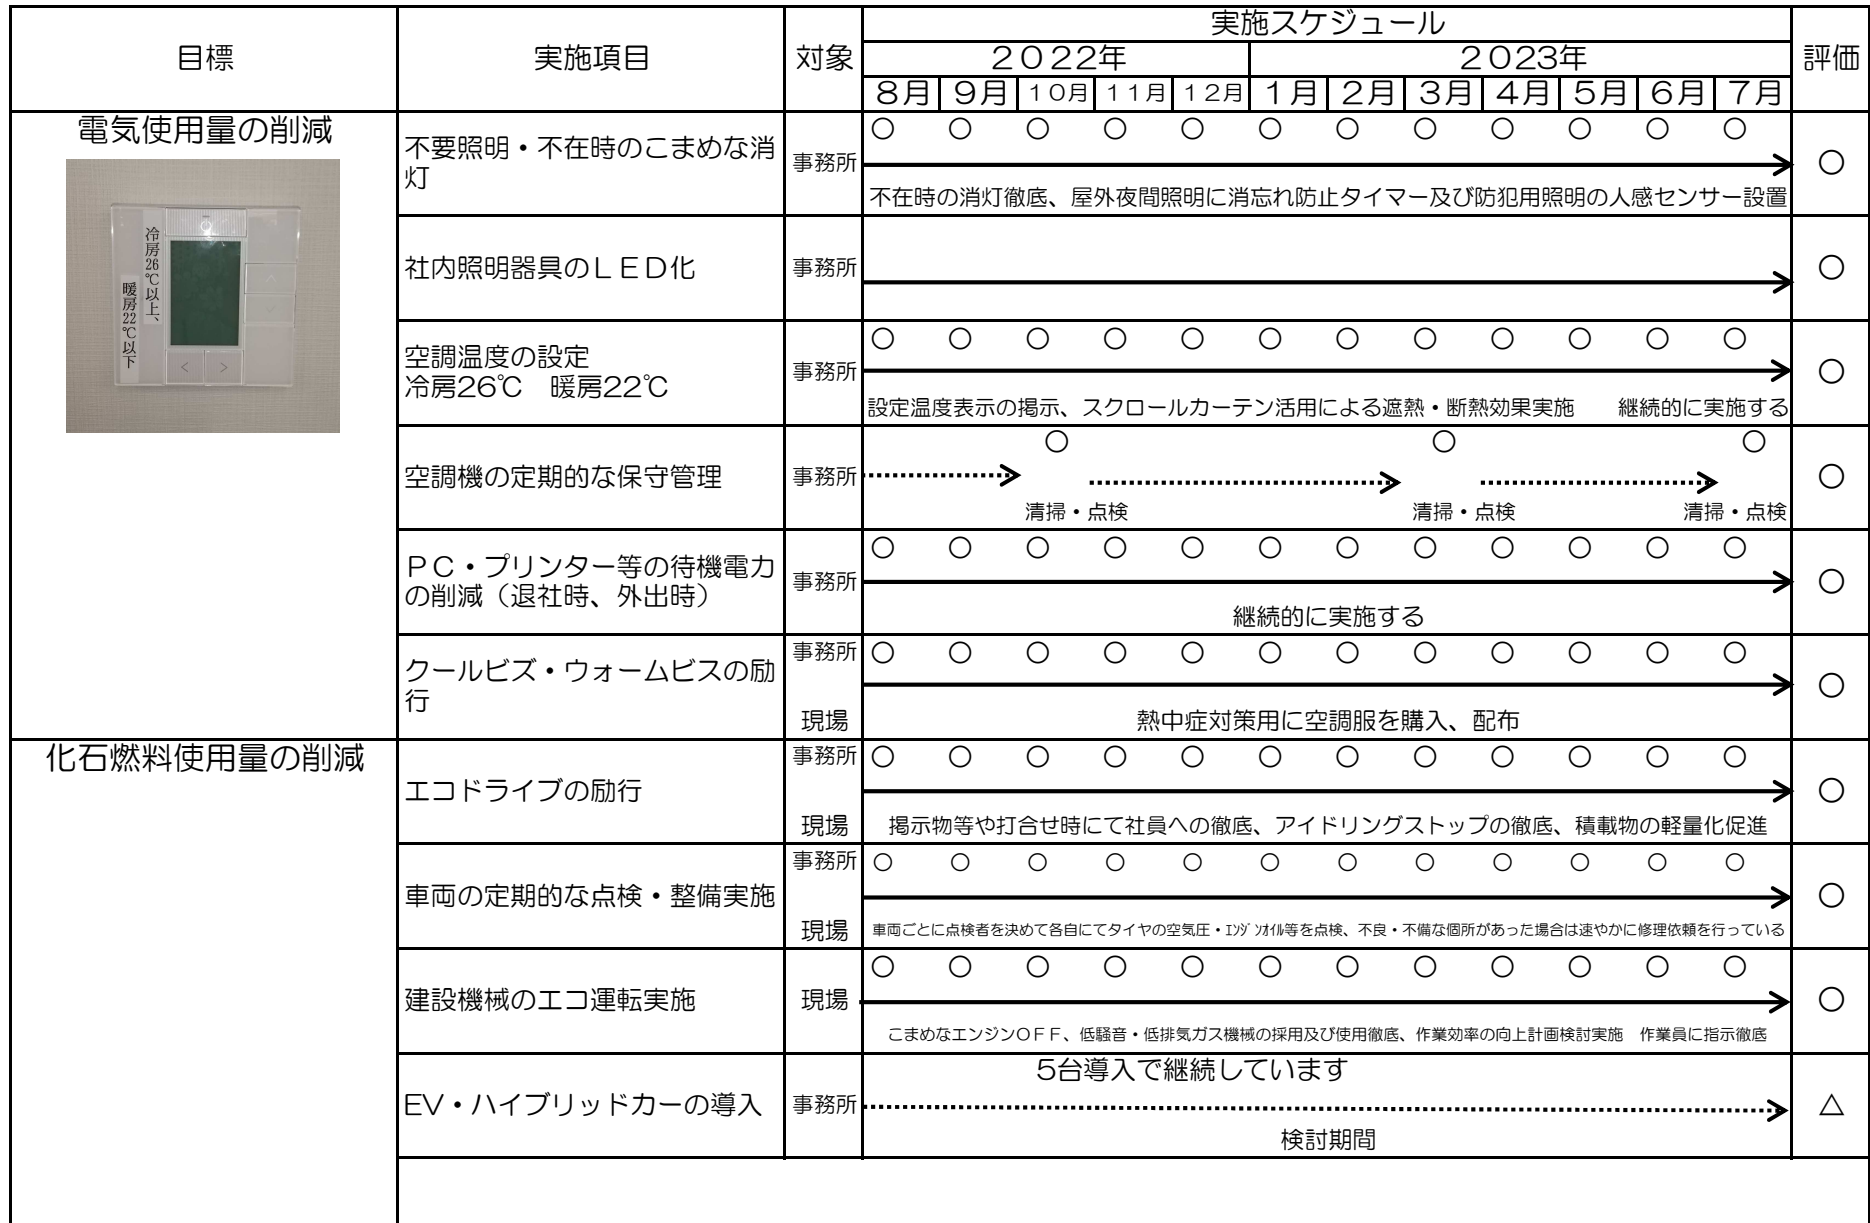 目標
実施項目
対象
実施スケジュール
評価
２０２２年
２０２３年
８月 ９月 １０月 １１月 １２月 １月 ２月 ３月 ４月 ５月 ６月 ７月
電気使用量の削減
冷房26℃以上、
暖房22℃以下
不要照明・不在時のこまめな消
灯
事務所
○ ○ ○ ○ ○ ○ ○ ○ ○ ○ ○ ○
不在時の消灯徹底、屋外夜間照明に消忘れ防止タイマー及び防犯用照明の人感センサー設置
○
社内照明器具のＬＥＤ化
事務所
○
空調温度の設定
冷房26℃　暖房22℃
事務所
○ ○ ○ ○ ○ ○ ○ ○ ○ ○ ○ ○
設定温度表示の掲示、スクロールカーテン活用による遮熱・断熱効果実施　　継続的に実施する
○
空調機の定期的な保守管理
事務所
○ ○ ○
清掃・点検 清掃・点検 清掃・点検
○
ＰＣ・プリンター等の待機電力
の削減（退社時、外出時）
事務所
○ ○ ○ ○ ○ ○ ○ ○ ○ ○ ○ ○
継続的に実施する
○
クールビズ・ウォームビスの励
行
事務所
現場
○ ○ ○ ○ ○ ○ ○ ○ ○ ○ ○ ○
熱中症対策用に空調服を購入、配布
○
化石燃料使用量の削減
エコドライブの励行
事務所
現場
○ ○ ○ ○ ○ ○ ○ ○ ○ ○ ○ ○
掲示物等や打合せ時にて社員への徹底、アイドリングストップの徹底、積載物の軽量化促進
○
車両の定期的な点検・整備実施
事務所
現場
○ ○ ○ ○ ○ ○ ○ ○ ○ ○ ○ ○
車両ごとに点検者を決めて各自にてタイヤの空気圧・ｴﾝｼﾞﾝｵｲﾙ等を点検、不良・不備な個所があった場合は速やかに修理依頼を行っている
○
建設機械のエコ運転実施
現場
○ ○ ○ ○ ○ ○ ○ ○ ○ ○ ○ ○
こまめなエンジンＯＦＦ、低騒音・低排気ガス機械の採用及び使用徹底、作業効率の向上計画検討実施　作業員に指示徹底
○
EV・ハイブリッドカーの導入
事務所
5台導入で継続しています
検討期間
△